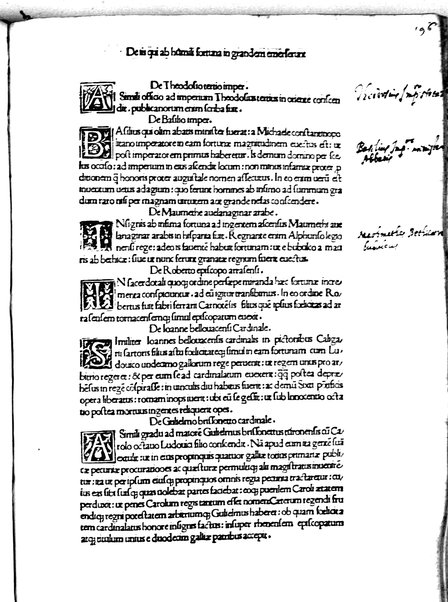 196
De iis qui ab humili fortuna in grandem emerserunt
De Theodosio tertio imper.
A Simili officio ad imperium Theodosius tertius in oriente conscen
dit, publicanorum enim scriba fuit.
De Basilio imper.
BAsilius qui olim abatis minister fuerat: a Michaele constantinopo
litano imperatore in eam fortunae magnitudinem euectus est: ut
post imperatorem primus haberetur. Is demum domino per sce
lus occiso: ad imperium in eius ascendit locum: non minus infamis propter p
ditionem q̄ honoris propter augustale nomen assecutus. In eo enim uerū est
inuentum uetus adagium: quo ferunt homines ab infimo ad summum gra
dum raro nisi per magnam uirtutem aut grande nefas conscendere.
De Maumethe auelanaginar arabe.
INsignis ab infima fortuna ad ingentem ascensus Maumethi aue
lanaginar arabis in hispania fuit. Regnante enim Alphonso legio
nensi rege: adeo is fauentē habuit fortunam: ut e bubulco a mau
ris ab bethica: siue ut nunc ferunt granatae regnum fuerit euectus.
De Roberto episcopo atrasensi.
IN sacerdotali quoq; ordine persepe miranda haec fortunae incre
menta conspiciuntur. ad eū igitur transibimus. In eo ordine Ro
bertus fuit fabri ferrari Carnotēsis filius quē ipsius foelicitas ad ar
rasensem tornacensemq; simul episcopatum euexit.
De Ioanne bellouacensi Cardinale.
SImiliter Ioannes bellouacensi cardinalis in pictonibus Caliga
ris sartoris filius asto foelicitateq; simul in eam fortunam cum Lu
douico undecimo gallorum rege peruenit: ut regem unus pro ar
bitrio regeret: & per eum se ad cardinalatum eueheret: q̄q̄ postea depre
hēsus in regē cōspirasse: in uinculis diu habitus fuerit: ac demū Sixti pōtificis
opera liberatus: romam inops iuerit: ubi eū se gessit: ut sub Innocentio octa
tio postea mortuus ingentes reliquerit opes.
De Guilielmo brissonetto cardinale.
A Simili gradu ad maiorē Guilielmus brissonettus turonensis cū Ca
rolo octauo Ludouici filio conscendit. Nā apud eum ita genē sui
extulit: ut in eius propinquis quatuor galliae totius primariae publi
cae pecuniae procurationes ac quaesturae permultiq; alii magistratus inuenirē
tur: ita ut per ipsum eiusq; propinquos omnis regia pecunia tractaretur: ca
ius eas sibi suisq; quas uolebat partes faciebat: eoq; puerulem Caroli aetatem
perduxit: ut penes Carolum regis tantum esset nomen Caeterum regendi fru
endiq; regni potestatem arbitriumq; Gulielmus haberet: ob quam foelicita
tem cardinalatus honore insignis factus: insuper rhenensem episcopatum
atq; titulum unius e duodecim galliae patribus accepit.